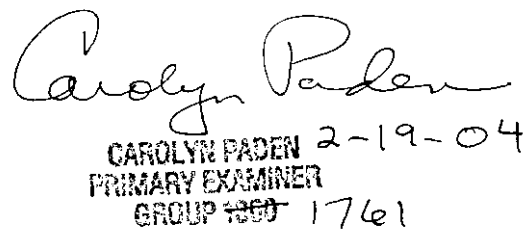 Carolyn Paden
CAROLYN PADEN 2-19-04
PRIMARY EXAMINER
GROUP 1300 1761